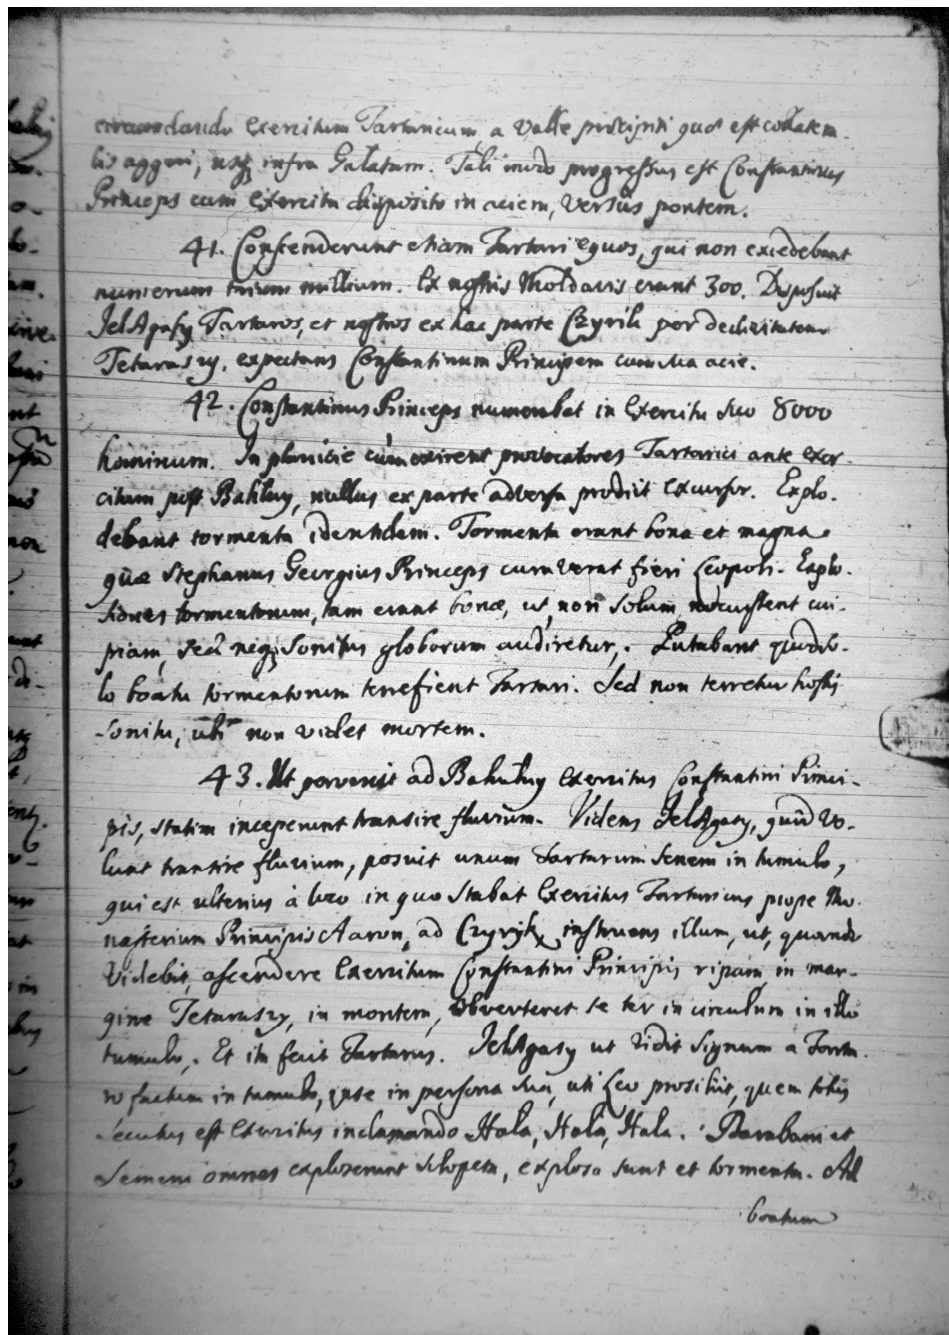 circumdando Exercitum Tartaricum a valle quod est
lis aggeri, usq; infra Galatam. Tali modo progressus est Constantinus
Princeps cum Exercitu disposito in aciem, versus pontem.
41. Conscenderunt etiam Tartari equos, qui non excedebant
numerum trium millium. Ex nostris Moldavis erant 300. Disposuit
JelAgasy Tartaros, et nostros ex hac parte Czyrik per declivitatem
Tetaraszy, expectans Constantinum Principem cum sua acie.
42. Constantinus Princeps numerabat in Exercitu suo 8000
hominum. In planicie cum exirent provocatores Tartarici ante exer-
citum post Bahluy, nullus ex parte adversa prodiit excursor. Explo-
debant tormenta identidem. Tormenta erant bona et magna
quæ Stephanus Georgius Princeps curaverat fieri Leopoli. Explo-
siones tormentorum, tam erant bonæ, ut, non solum nocuissent cui-
piam, sed neq; sonitus globorum audiretur. Putabant quod so-
lo boatu tormentorum terrefient Tartari. Sed non terretur hostis
sonitu, ubi non videt mortem.
43. Ut pervenit ad Bahluy Exercitus Constantini Princi-
pis, statim inceperunt transire fluvium. Videns JelAgasy, quod vo-
lunt transire fluvium, posuit unum Tartarum senem in tumulo,
qui est ulterius à loco in quo stabat Exercitus Tartaricus prope Mo-
nasterium Principis Aaron, ad Czyryk, instruens illum, ut, quando
videbit, ascendere Exercitum Constantini Principis ripam, in mar-
gine Tetaraszy, in montem, obverteret se ter in circulum in illo
tumulo. Et ita fecit Tartarus. JelAgasy ut vidit signum a Tarta-
ro factum in tumulo, ipse in persona sua, uti Leo prosiliit, quem totus
secutus est Exercitus inclamando Hala, Hala, Hala. Barabani et
Semeni omnes exploserunt sclopeta, explosa sunt et tormenta. Ad
boatum